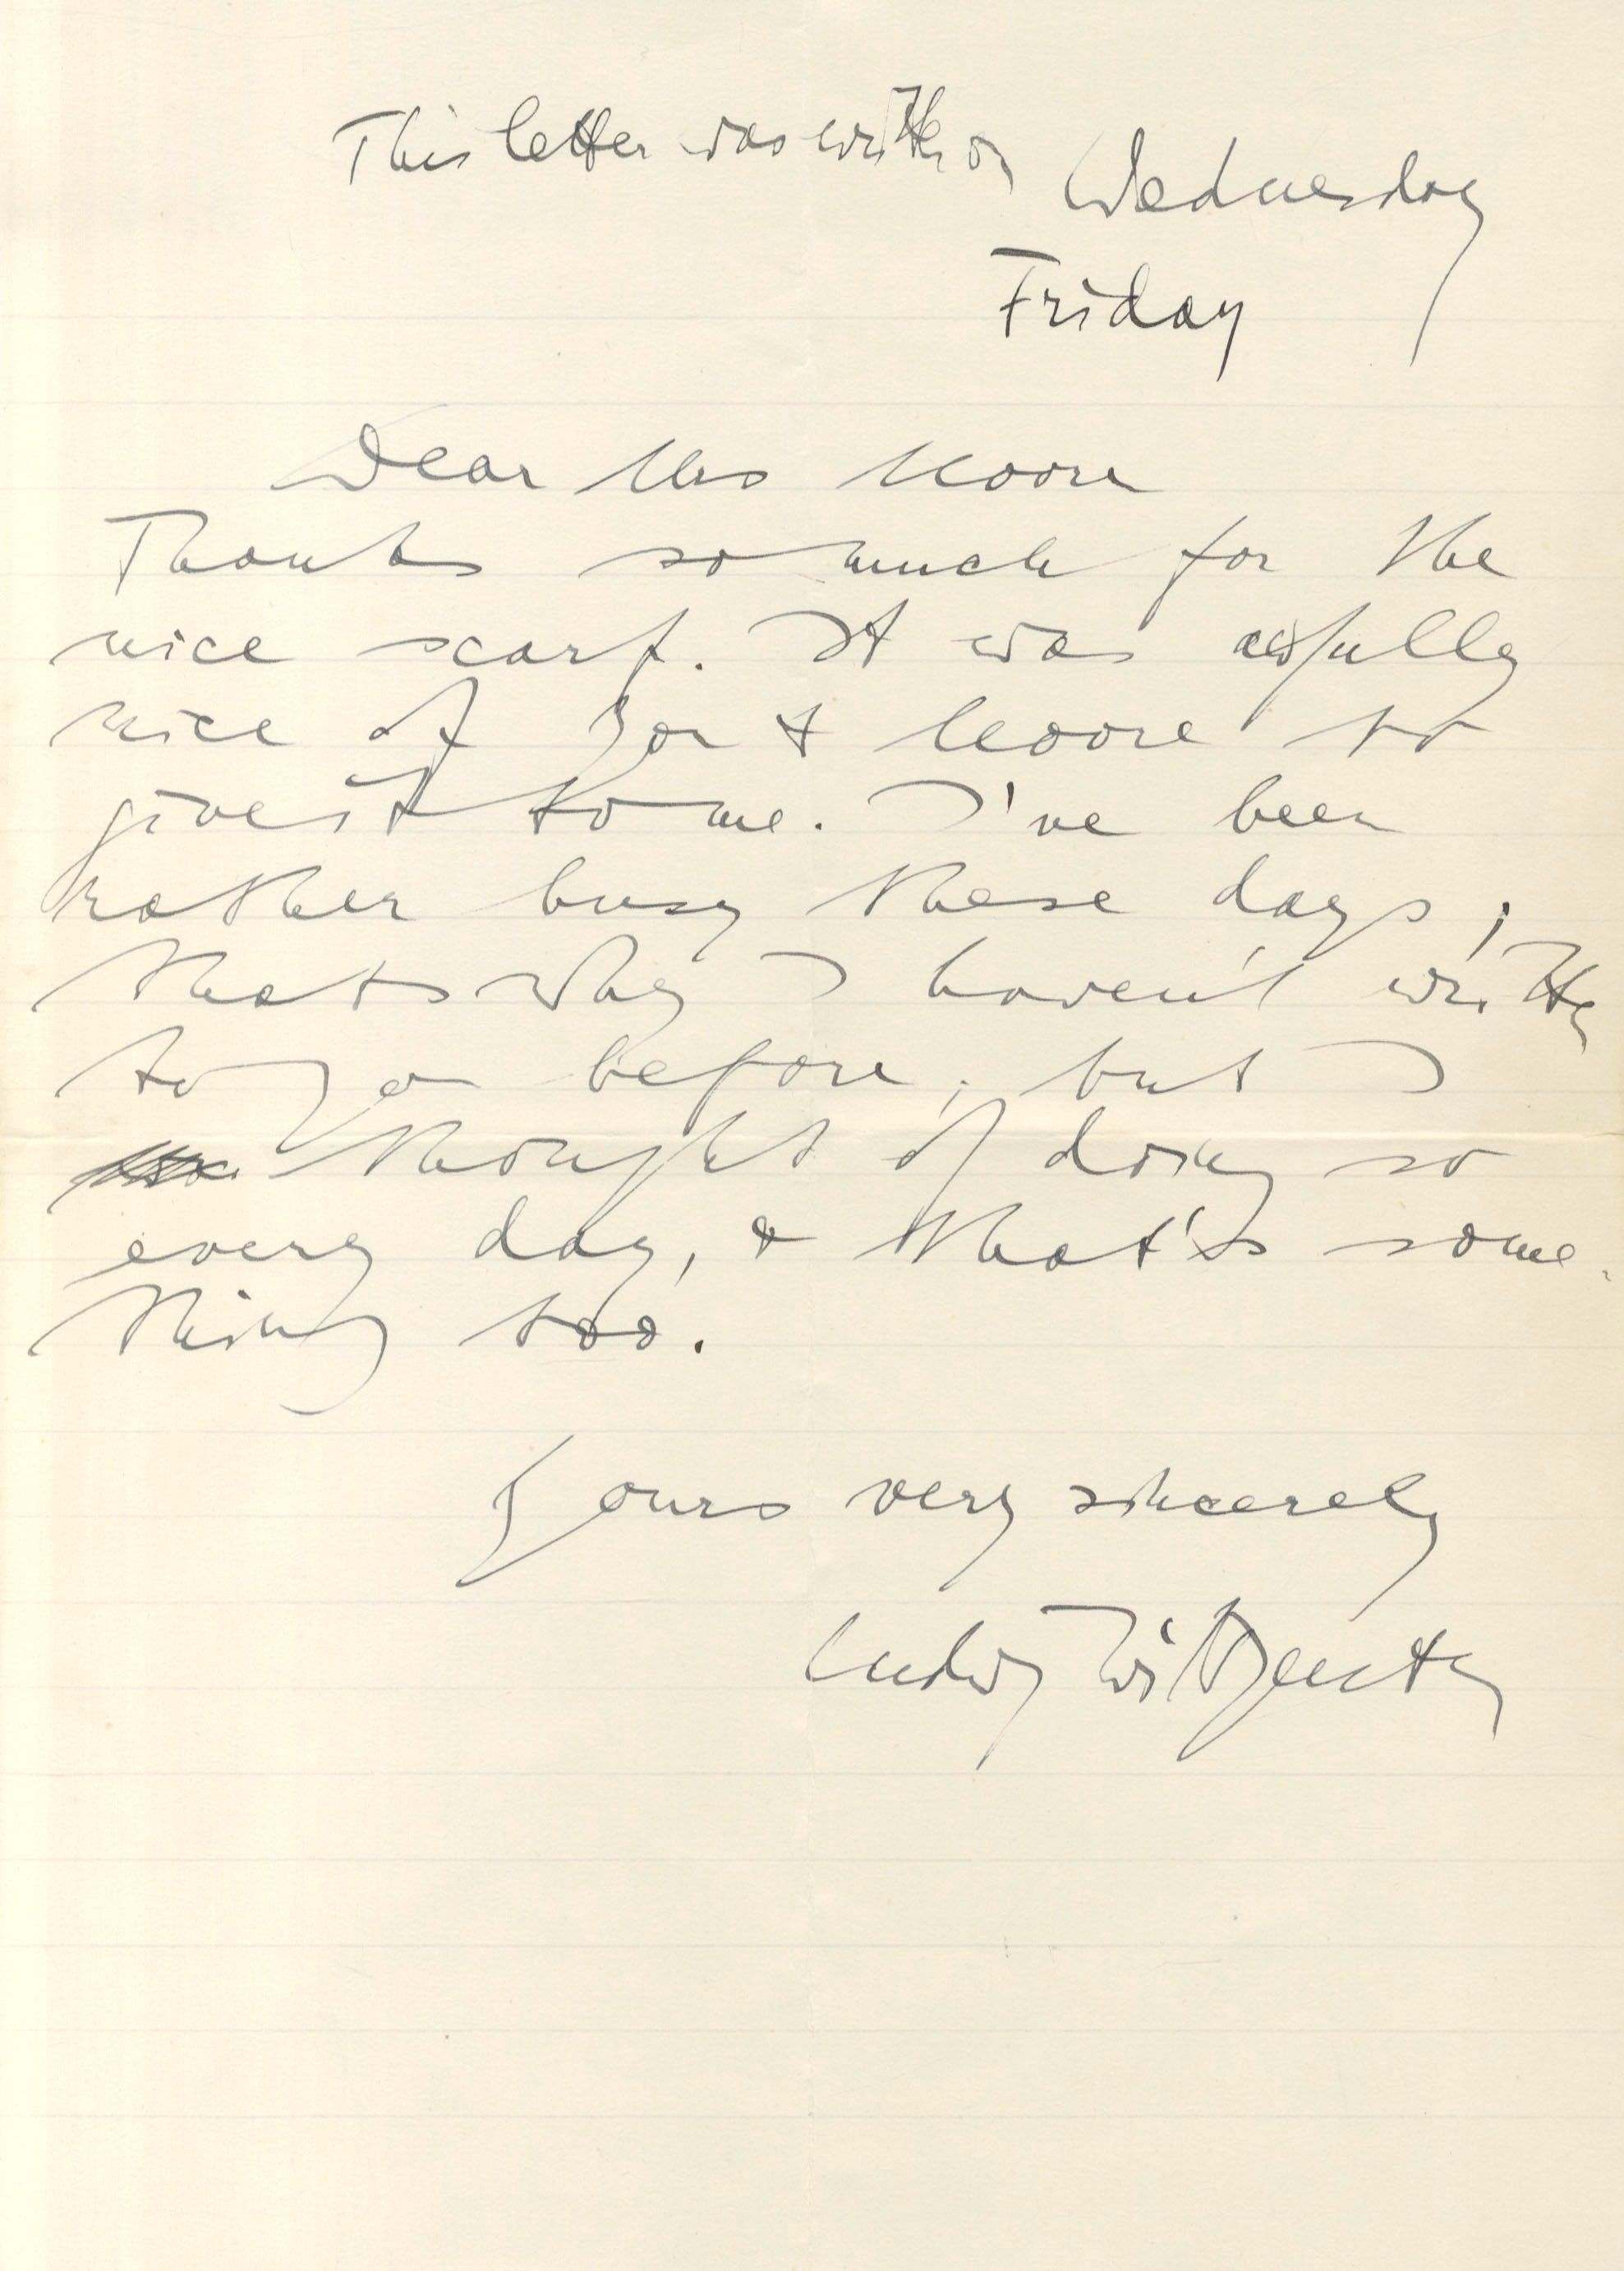 This letter was written on Wednesday
Friday
Dear Mrs Moore
Thanks so much for the
nice scarf. It was awfully
nice of you & Moore to
give it to me. I've been
rather busy these days;
thats why I haven't written
to you before; but I
thought of doing so
every day, & that's some-
thing too.
Yours very sincerely
Ludwig Wittgenstein